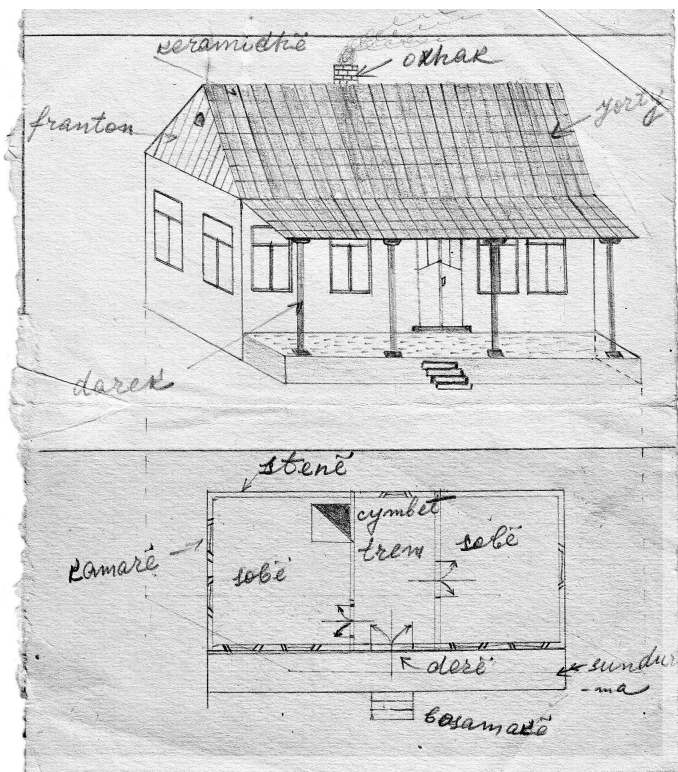 keramidhë
oxhak
franton
yorty
darek
stenë
cymbet
kamarë
sobë
trem
sobë
derë
sundur
-ma
bosamakë